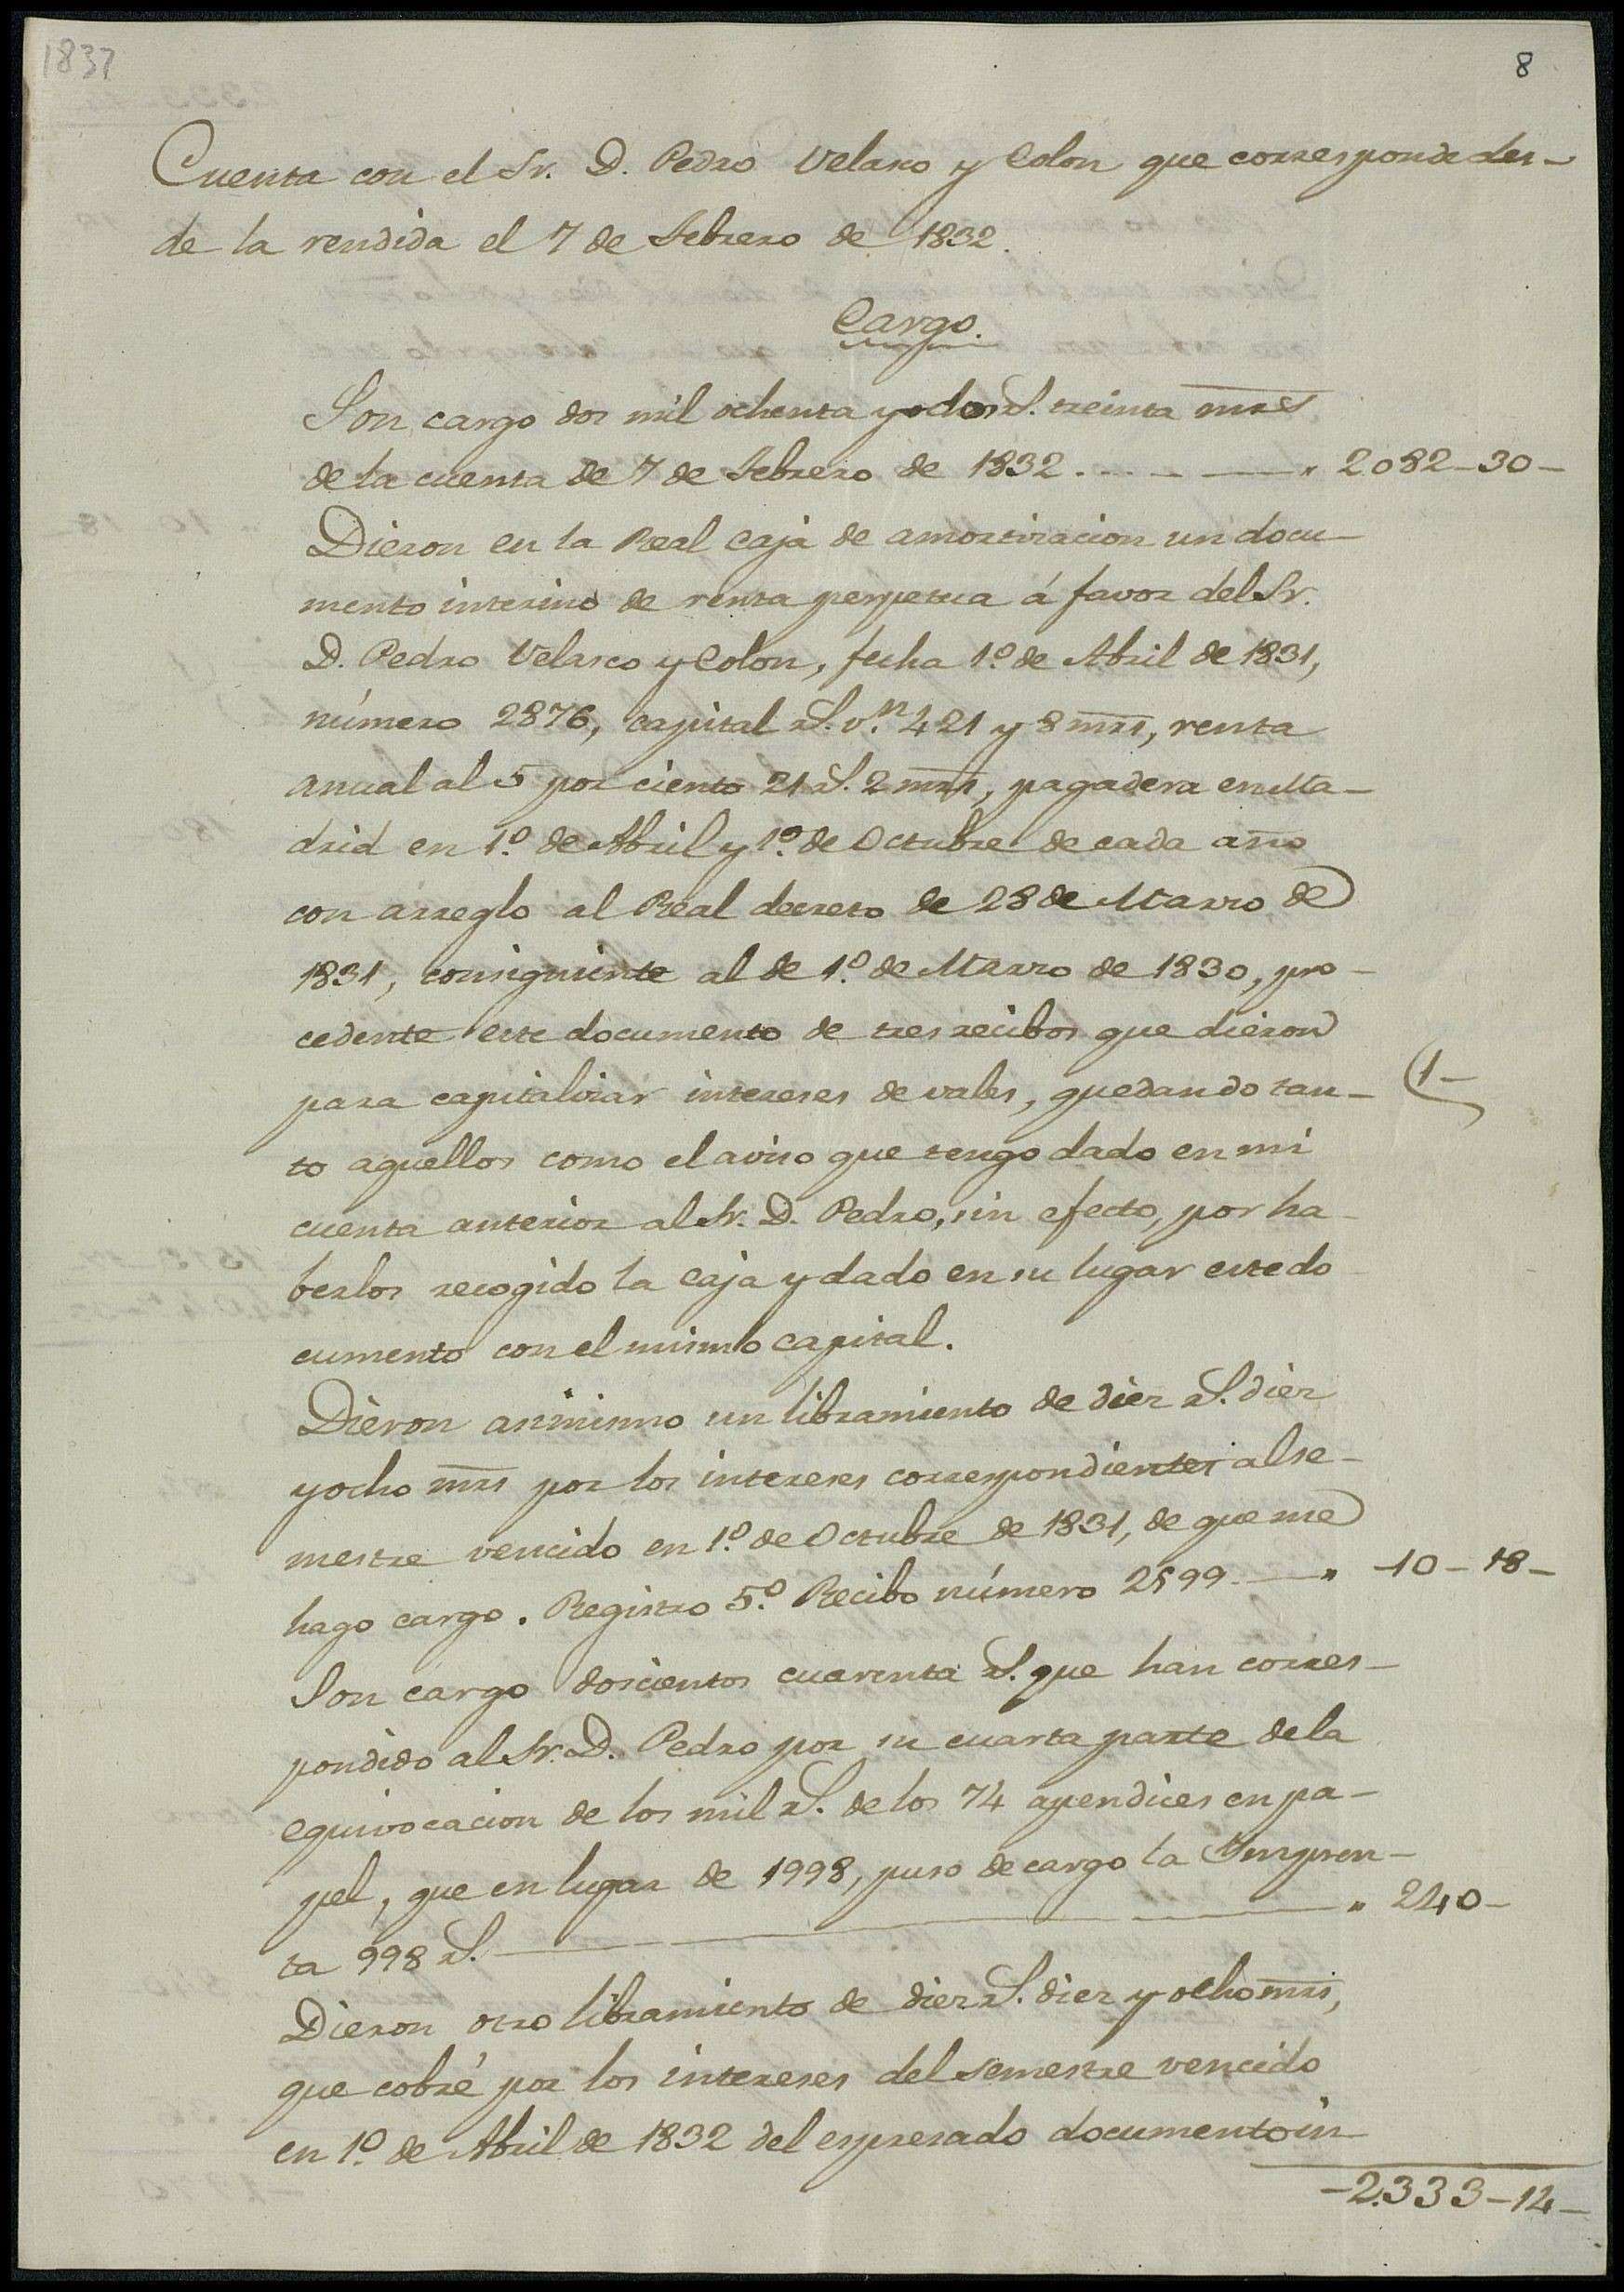 1837
8
Cuenta con el Sr. D. Pedro Velasco y Colon que corresponde des-
de la rendida el 7 de Febrero de 1832.
Cargo.
Son cargo dos mil ochenta y dos rS. treinta mrs
de la cuenta de 7 de Febrero de 1832 . - - - — " 2082-30-
Dieron en la Real Caja de amortizacion un docu-
mento interino de renta perpetua á favor del Sr.
D. Pedro Velasco y Colon, fecha 1.º de Abril de 1831,
número 2876, capital rS. v.n 421 y 8 mrs, renta
anual al 5 por ciento 21 rS. 2 mrs, pagadera en Ma-
drid en 1.º de Abril y 1.º de Octubre de cada año
con arreglo al Real decreto de 28 de Marzo de
1831, consiguiente al de 1.º de Marzo de 1830, pro-
cedente este documento de tres recibos que dieron
para capitalizar intereses de vales, quedando tan- (1-
to aquellos como el aviso que tengo dado en mi
cuenta anterior al Sr. D. Pedro, sin efecto, por ha-
berlos recogido la Caja y dado en su lugar este do
cumento con el mismo capital.
Dieron asimismo un libramiento de diez rS. diez
y ocho mrs por los intereses correspondientes al se-
mestre vencido en 1.º de Octubre de 1831, de que me
hago cargo. Registro 5.º Recibo número 2599 — " -10-18-
Son cargo doscientos cuarenta rS. que han corres-
pondido al Sr. D. Pedro por su cuarta parte de la
equivocacion de los mil rS. de los 74 apendices en pa-
pel, que en lugar de 1998, puso de cargo la Impren-
ta 998 rS. — " 240-
Dieron otro libramiento de diez rS. diez y ocho mrs,
que cobré por los intereses del semestre vencido
en 1.º de Abril de 1832 del espresado documento in-
-2.333-14-